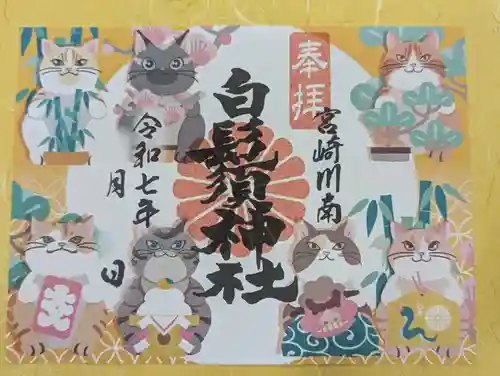 奉拝
宮崎川南
白髭須神社
令和七年
月
日